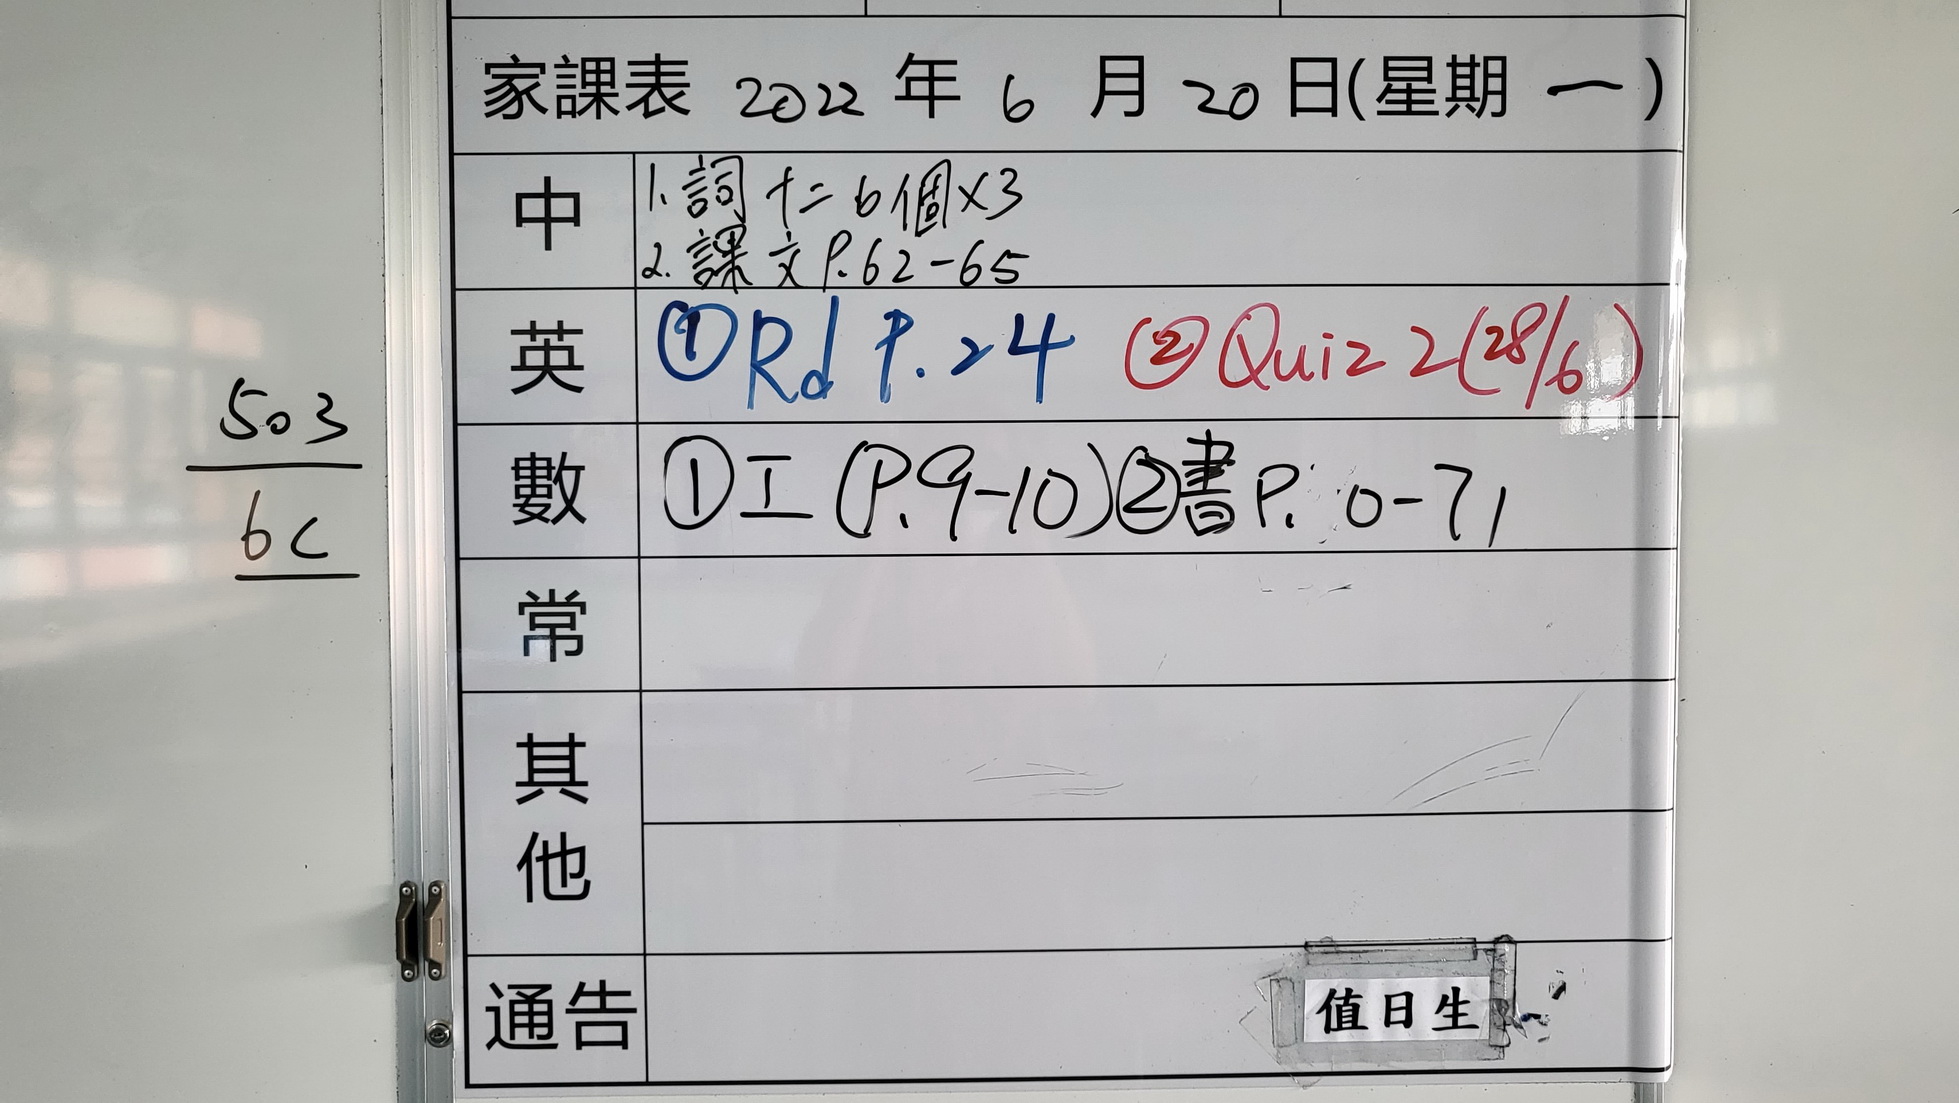 家課表 2022 年 6 月 20 日(星期 一 )
中
1. 詞 十二 6個×3
2. 課文 P.62-65
英
①Rd P.24 ②Quiz 2(28/6)
數
①工(P.9-10)②書P. 0-71
常
其他
通告
值日生
503
6C